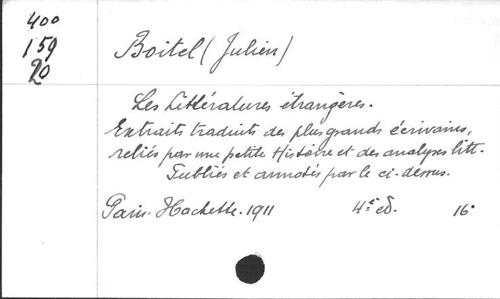 400
159
20
Boitel (Julien)
Les Littératures étrangères.
Extraits traduits des plus grands écrivains,
reliés par une petite Histoire et des analyses litt.
Publiés et annotés par le ci-dessus.
Paris. Hachette. 1911 4e éd. 16°